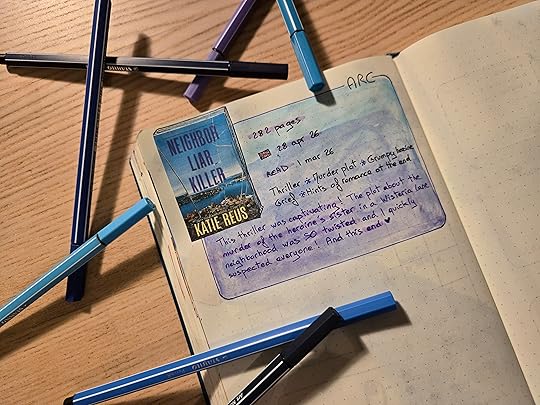 ARC
NEIGHBOR.
LIAR.
KILLER.
KATIE REUS
282 pages
28 apr 26
READ 1 mar 26
Thriller * Murder plot * Grumpy heroine
Grief * Hints of romance at the end
This thriller was captivating! The plot about the
murder of the heroine's sister in a Wisteria Lane
neighborhood was SO twisted and I quickly
suspected everyone! And this end ♥